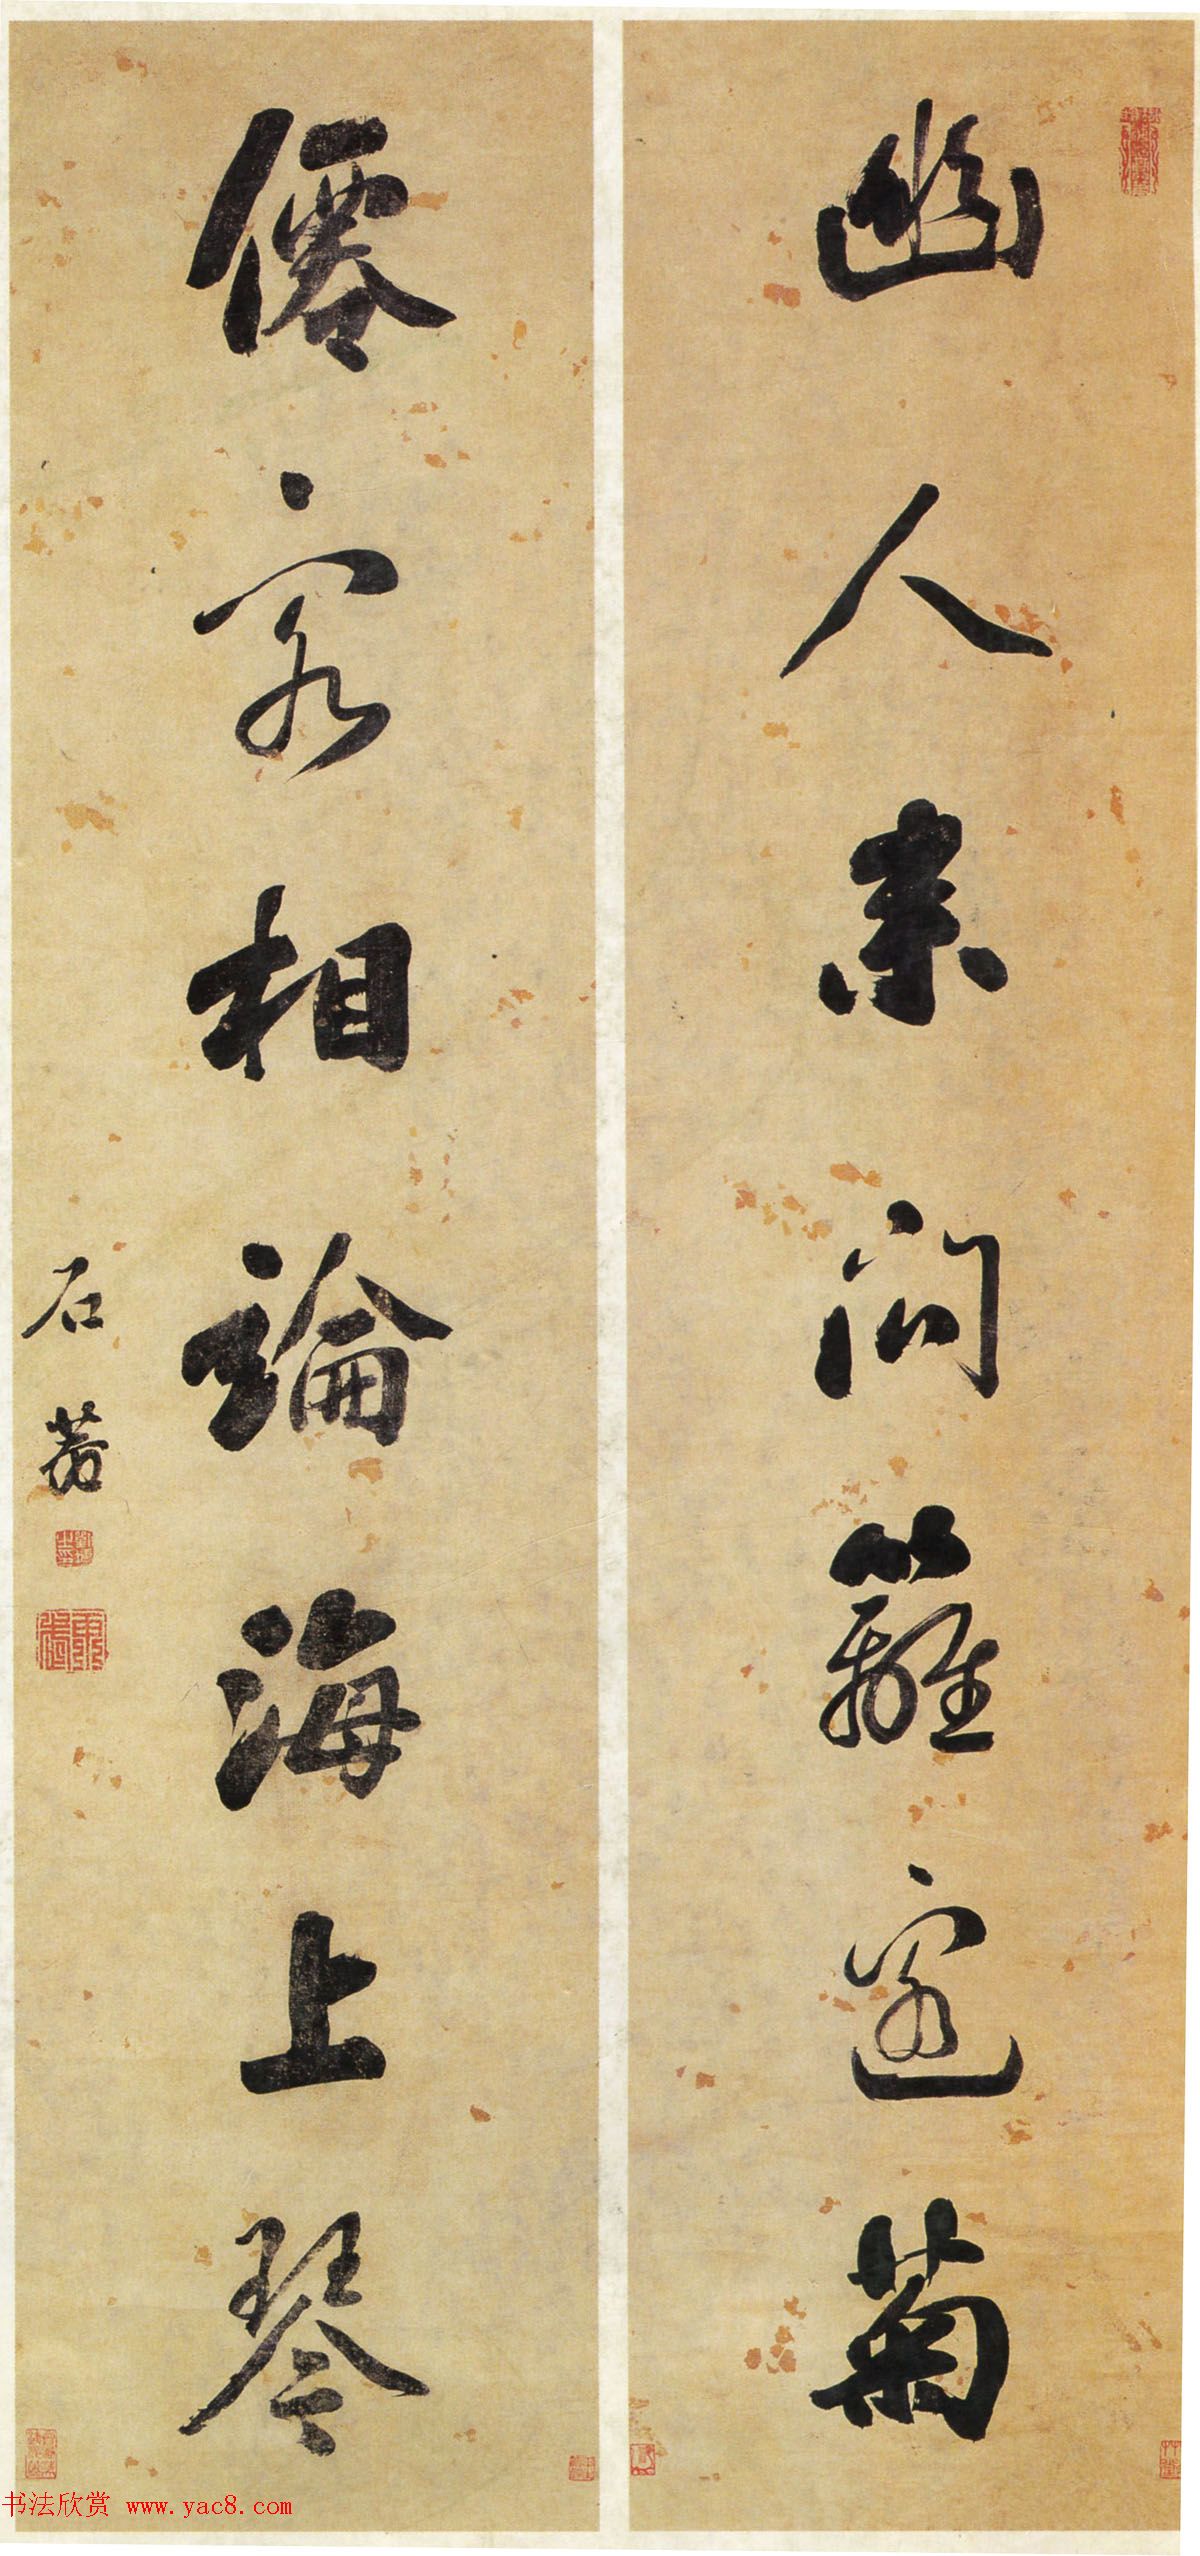 幽人素問籬邊菊
僊客相論海上琴
石菴
书法欣赏 www.yac8.com